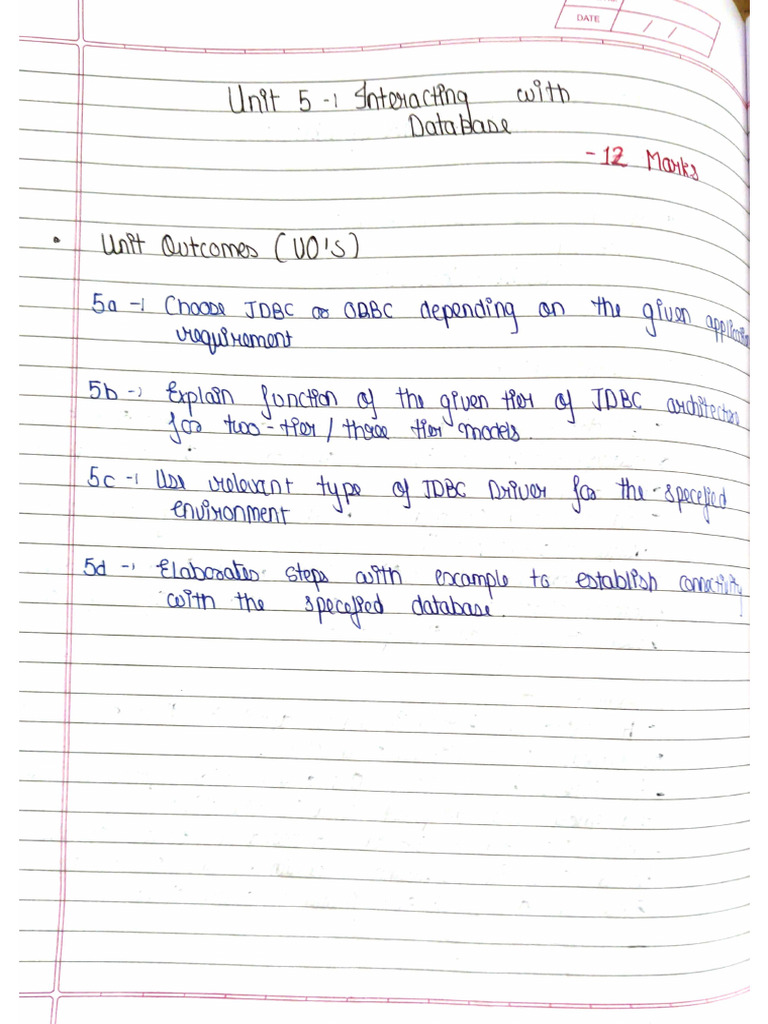 DATE
Unit 5 -: Interacting with
Database
- 12 Marks
• Unit Outcomes (UO's)
5a -: Choose JDBC or ODBC depending on the given application
requirement
5b -: Explain function of the given tier of JDBC architecture
for two-tier / three tier models.
5c -: Use relevant type of JDBC Driver for the specefied
environment
5d -: Elaborates steps with example to establish connectivity
with the specefied database.